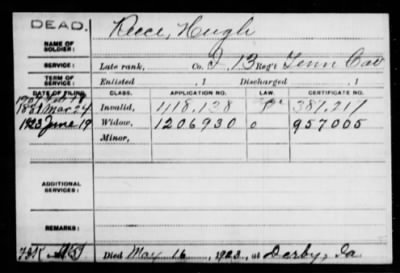 DEAD.
Reece, Hugh
NAME OF
SOLDIER:
SERVICE: Late rank, Co. I, 13 Reg't Tenn Cav
TERM OF
SERVICE: Enlisted , 1 Discharged , 1
DATE OF FILING. CLASS. APPLICATION NO. LAW. CERTIFICATE NO.
1881 Mar 24 Invalid, 418,138 387,217
1923 June 19 Widow, 1206930 957005
Minor,
ADDITIONAL
SERVICES:
REMARKS:
Died May 16, 1923, at Derby, Ia